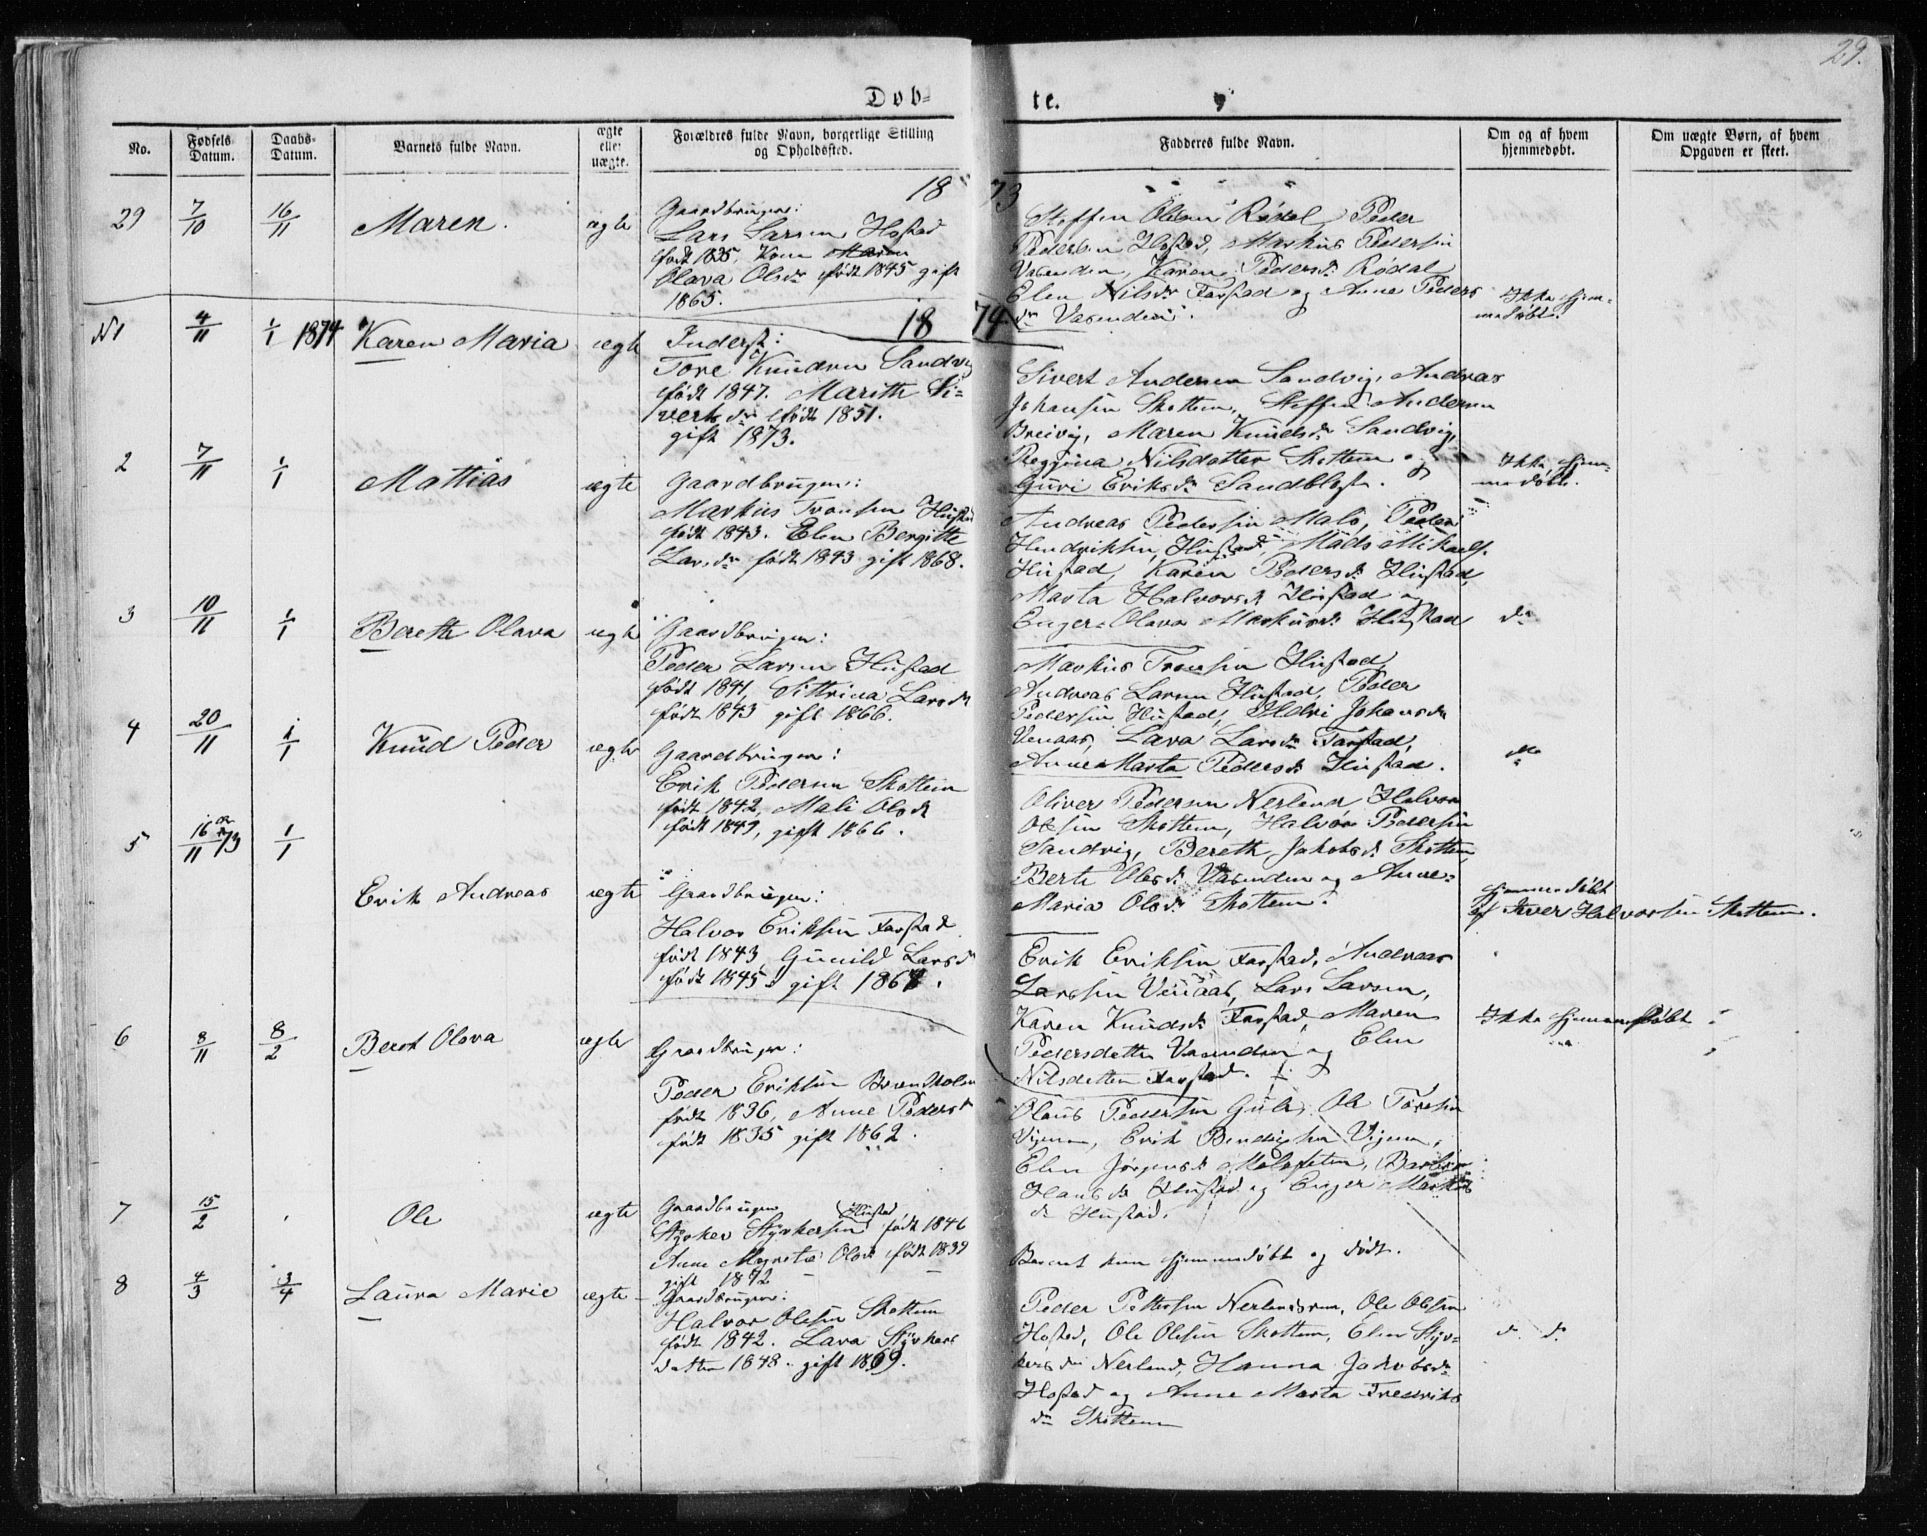 29.
Døb=
te.
No.
Fødsels
Datum.
Daabs-
Datum.
Barnets fulde Navn.
ægte
eller
uægte.
Forældres fulde Navn, borgerlige Stilling
og Opholdssted.
Fadderes fulde Navn.
Om og af hvem
hjemmedøbt.
Om uægte Børn, af hvem
Opgaven er skeet.
18 73
29 7/10 16/11 Maren. ægte
Gaardbruger:
Lars Larsen Hostad
født 1835, Kone Maren
Olava Olsdr født 1845 gift
1865.
Steffen Olsen Rødal Peder
Pedersen Hostad, Markus Pedersen
Vasenden, Karen Pedersdr Rødal
Elen Nilsdr Farstad og Anne Peders
dr Vasenden.
Ikke hjem-
medøbt.
18 74
N1 4/11 1/1 1874 Karen Maria ægte
Inderst:
Tore Knudsen Sandvig
født 1847. Marith Si=
vertsdr født 1851.
gift 1873.
Sivert Andersen Sandvig, Andreas
Johansen Skottem, Steffen Andersen
Breivig, Maren Knudsdr Sandvig,
Reggina Nilsdatter Skottem og
Guri Eriksdr Sandblost.
Ikke hjem-
medøbt.
2 7/11 1/1 Mattias ægte
Gaardbruger:
Markus Tronsen Hustad
født 1843. Elen Bergitte
Larsdr født 1843 gift 1868.
Andreas Pedersen Malo, Peder
Hendriksen Hustad, Mads Mikaels.
Hustad, Karen Pedersdr Hustad
Marta Halvorsdr Hustad og
Enger Olava Markusdr Hustad
do
3 10/11 1/1 Bereth Olava ægte
Gaardbruger:
Peder Larsen Hustad
født 1841, Sittrina Larsdr
født 1843 gift 1866.
Markus Tronsen Hustad
Andreas Larsen Hustad, Peder
Pedersen Hustad, Ildri Johansdr
Venaas, Lava Larsdr Farstad,
Anne Marta Pedersdr Hustad.
do
4 20/11 1/1 Knud Peder ægte
Gaardbruger:
Erik Pedersen Skottem
født 1842, Mali Olsdr
født 1849, gift 1866.
Oliver Pedersen Nerland Halvor
Olsen Skottem, Halvor Pedersen
Sandvig, Bereth Jakobsdr Skottem
Berte Olesdr Vasenden og Anne=
Maria Olsdr Skottem.
hjemmedøbt
af Iver Halvorsen Skottem.
5 16/11 73 1/1
Erik Andreas ægte
Gaardbruger:
Halvor Eriksen Farstad
født 1843, Gunild Larsdr
født 1845 gift 1867.
Erik Eriksen Farstad, Andreas
Larssen Venaas, Lars Larsen,
Karen Knudsdr Farstad, Maren
Pedersdatter Vasenden og Elen
Nilsdatter Farstad.
Ikke hjemmedøbt
6 8/11 8/2 Beret Olava ægte
Gaardbruger:
Peder Eriksen
født 1836, Anne Pedersdr
født 1835 gift 1862.
Olaus Pedersen Gule, Ole Toresen
Vigem, Erik Bendiksen Vigem,
Elen Jørgensdr
Hansdr Hustad og Enger Markus
dr Hustad.
7 15/2 Ole ægte
Gaardbruger
Styrker Styrkersen Hustad født 1846
Anne Magrete Olsdr født 1839
gift 1872
Barnet kun hjemmedøbt og dødt.
8 4/3 3/4 Laura Marie ægte
Gaardbruger:
Halvor Olesen Skottem
født 1842. Lava Styrkers
datter 1848. gift 1869.
Peder Pettersen Nerlandsrem, Ole Olsen
Hostad, Ole Olesen Skottem, Elen Styr-
kersdr Nerland, Hanna Jakobsdr
Hostad og Anne Marta Fredriks
dr Skottem
do do